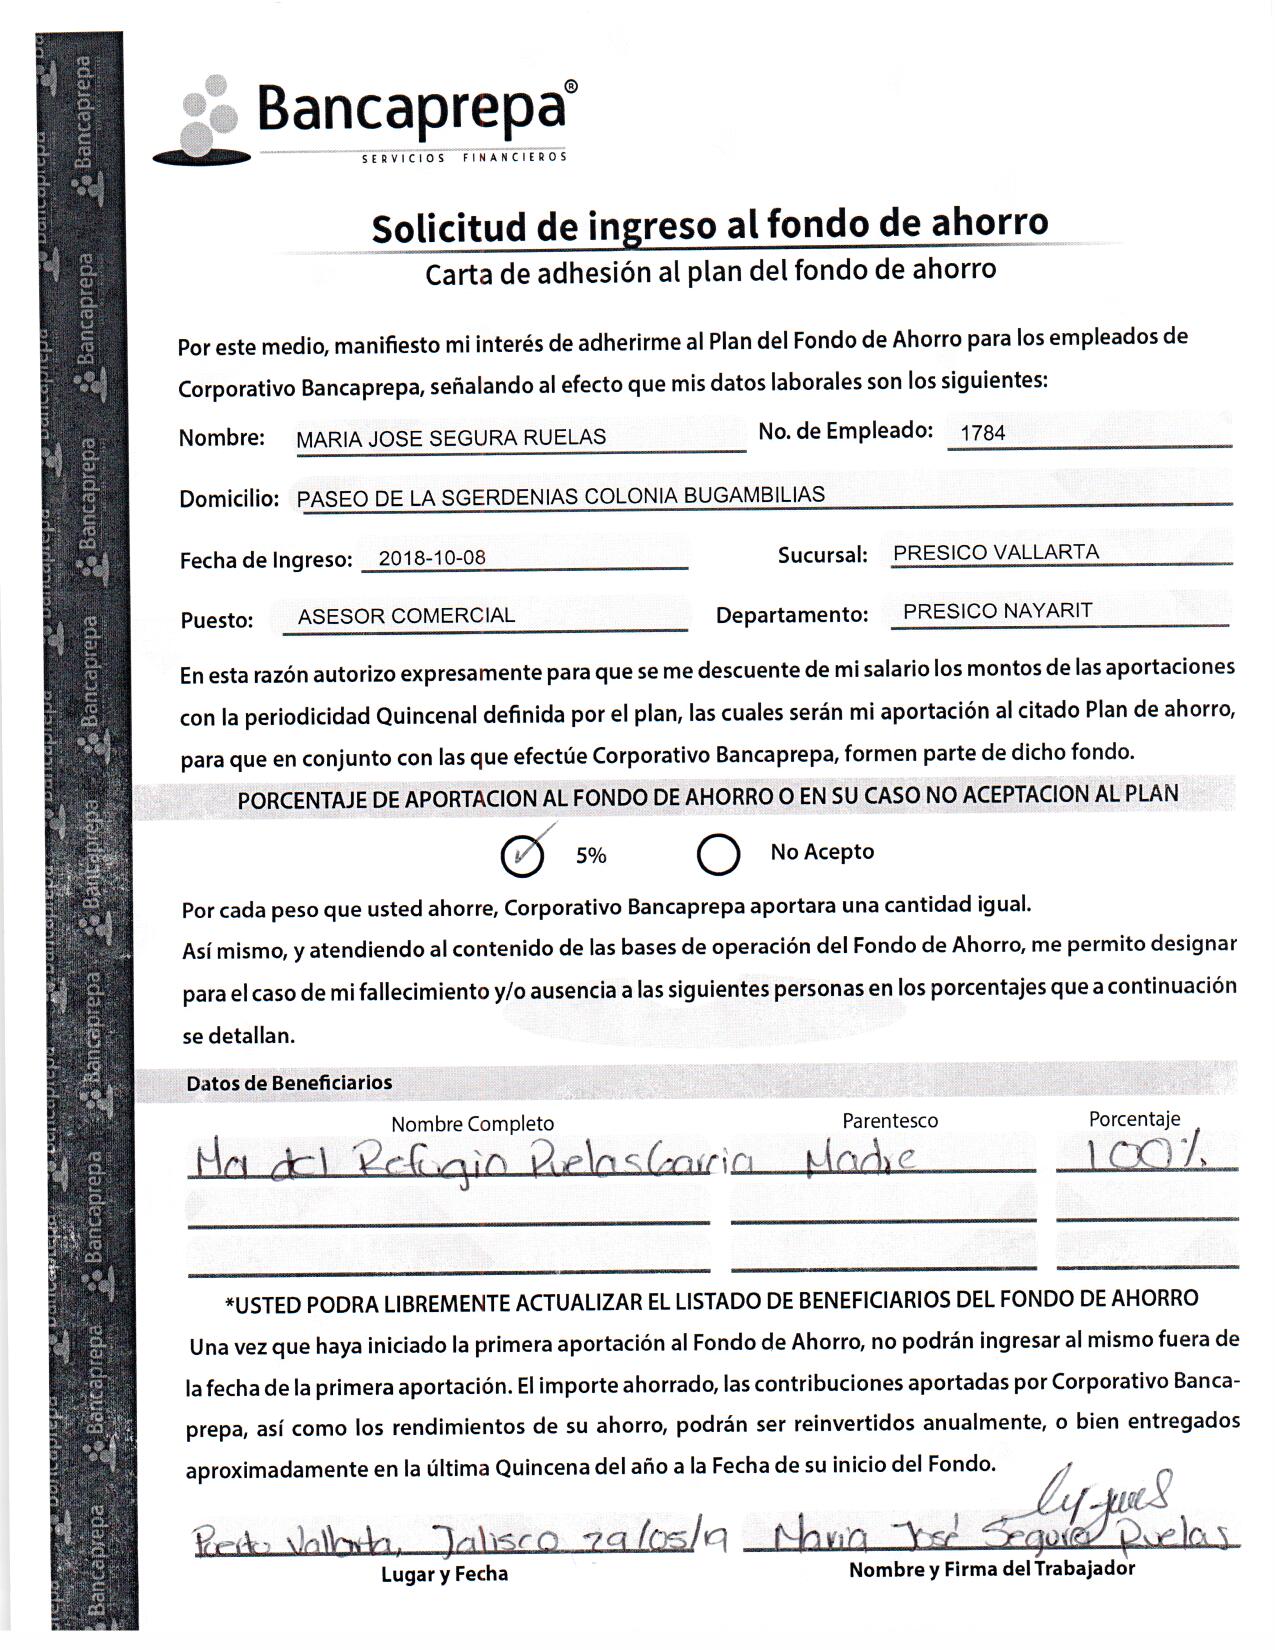 Bancaprepa®
SERVICIOS FINANCIEROS
Solicitud de ingreso al fondo de ahorro
Carta de adhesión al plan del fondo de ahorro
Por este medio, manifiesto mi interés de adherirme al Plan del Fondo de Ahorro para los empleados de
Corporativo Bancaprepa, señalando al efecto que mis datos laborales son los siguientes:
Nombre: MARIA JOSE SEGURA RUELAS No. de Empleado: 1784
Domicilio: PASEO DE LA SGERDENIAS COLONIA BUGAMBILIAS
Fecha de Ingreso: 2018-10-08 Sucursal: PRESICO VALLARTA
Puesto: ASESOR COMERCIAL Departamento: PRESICO NAYARIT
En esta razón autorizo expresamente para que se me descuente de mi salario los montos de las aportaciones
con la periodicidad Quincenal definida por el plan, las cuales serán mi aportación al citado Plan de ahorro,
para que en conjunto con las que efectúe Corporativo Bancaprepa, formen parte de dicho fondo.
PORCENTAJE DE APORTACION AL FONDO DE AHORRO O EN SU CASO NO ACEPTACION AL PLAN
5% No Acepto
Por cada peso que usted ahorre, Corporativo Bancaprepa aportara una cantidad igual.
Así mismo, y atendiendo al contenido de las bases de operación del Fondo de Ahorro, me permito designar
para el caso de mi fallecimiento y/o ausencia a las siguientes personas en los porcentajes que a continuación
se detallan.
Datos de Beneficiarios
Nombre Completo Parentesco Porcentaje
Ma del Refugio Ruelas Garcia Madre 100%
*USTED PODRA LIBREMENTE ACTUALIZAR EL LISTADO DE BENEFICIARIOS DEL FONDO DE AHORRO
Una vez que haya iniciado la primera aportación al Fondo de Ahorro, no podrán ingresar al mismo fuera de
la fecha de la primera aportación. El importe ahorrado, las contribuciones aportadas por Corporativo Banca-
prepa, así como los rendimientos de su ahorro, podrán ser reinvertidos anualmente, o bien entregados
aproximadamente en la última Quincena del año a la Fecha de su inicio del Fondo.
Puerto Vallarta, Jalisco 29/05/19 Maria José Segura Ruelas
Lugar y Fecha Nombre y Firma del Trabajador